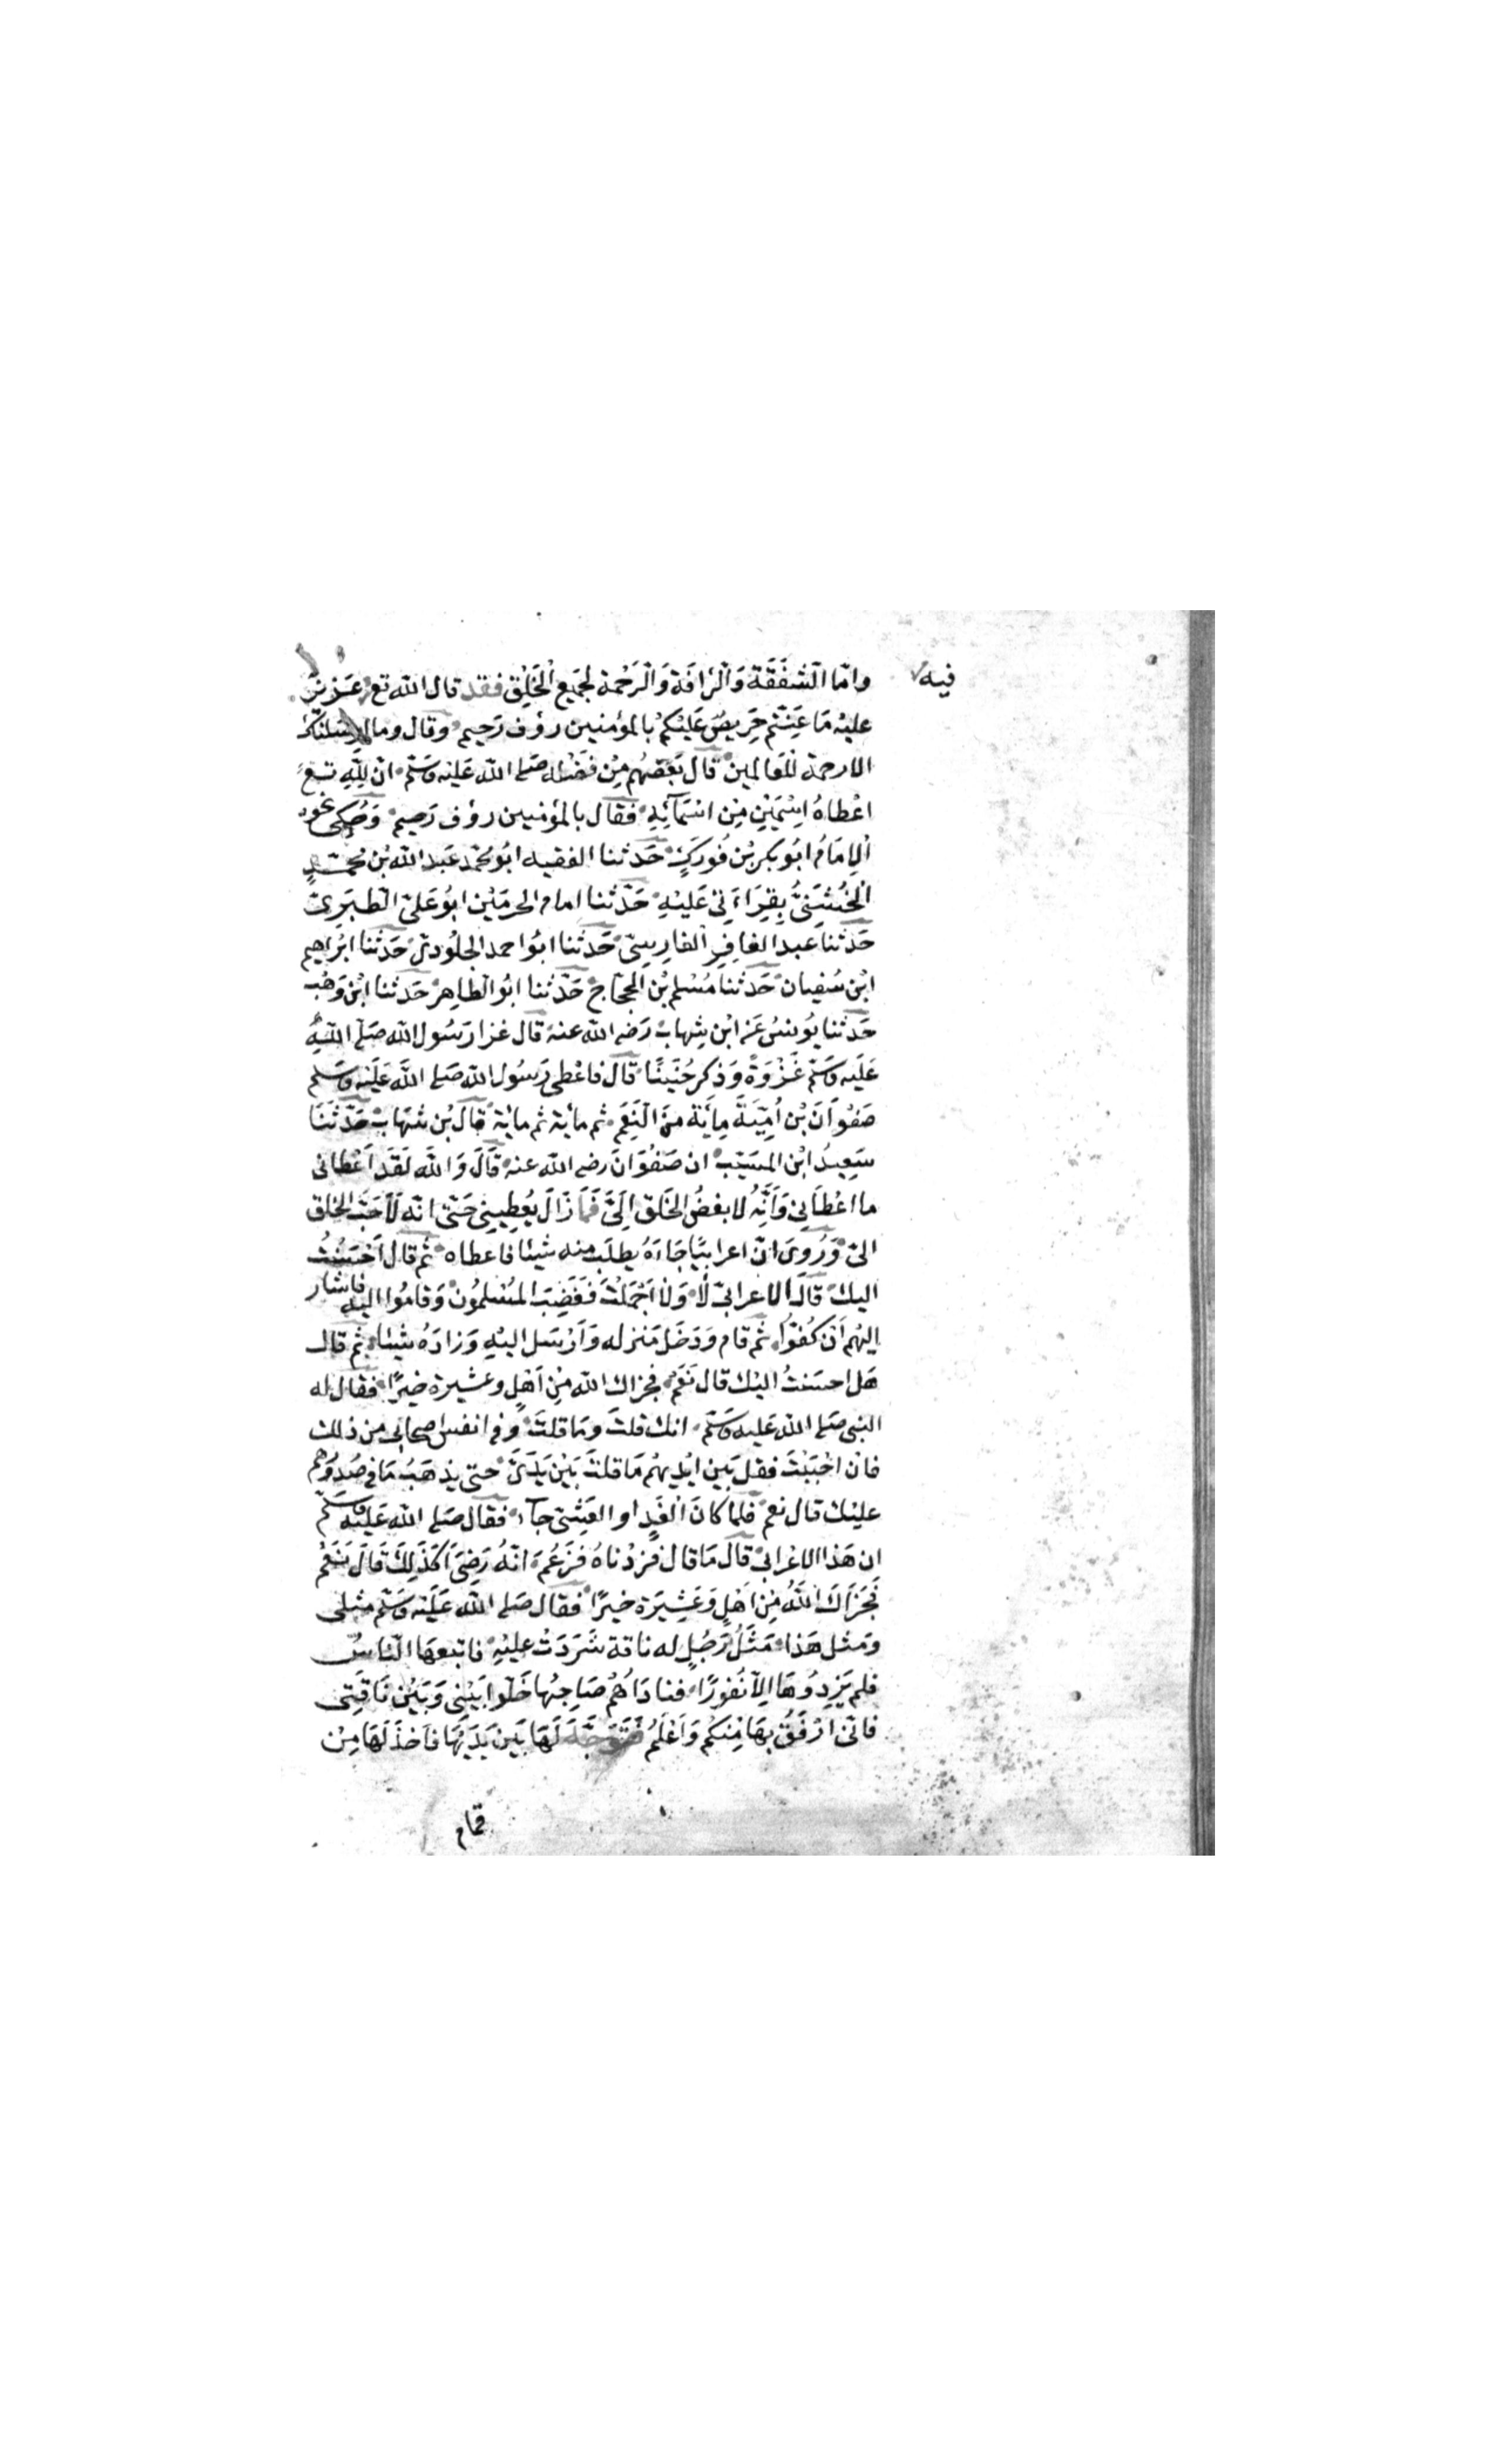 فيه
وامّا الشفَقَة وَالرَافَة وَالرَحْمة لجَميع الخَلِق فقد قال الله تع عَزيزٌ
عليْه مَا عَنِتّم حَريصٌ عَليْكمْ بالمؤمنين رؤف رَحيم وقال وما ارسَلناكَ
الا رحمة للعَالمين قال بَعضهُم مِن فَضله صَلى الله عَليْه وَسَلم ان لِلّهِ تع
اعْطاهُ اسْمَيْنِ مِن اسْمَآئِهِ فقال بالمؤمنين رؤف رَحيم وَحُكى نحوه
الإمَامُ ابُو بكر بْن فُورَكٍ حَدثنا الفقيه ابُو محمّد عَبد الله بْن محمّدٍ
الْخُشَنِىُّ بِقِرَاءَتى عَليْهِ حَدّثنا امام الحرمَيْن ابُو عَلى الطبَرِىّ
حَدثنا عبد الغافِرِ الفارِسِىّ حَدثنا ابُو احمد الجلُودىّ حَدثنا ابْراهيم
ابْن سُفيان حَدثنا مُسْلم بْن الحجّاج حَدّثنا ابُو الطاهِر حَدثنا ابْن وَهْب
حَدثنا يوُنسُ عَن ابْن شِهابٍ رَضى الله عنه قال غزا رَسُول الله صَلى الله
عَليه وَسَلم غَزْوَةً وَذكر حُنَيْنًا قال فاعْطى رَسُول الله صَلى الله عَلَيْه وَسَلم
صَفْوَانَ بْن اُمَيّةَ مِايَة منَ النّعَم ثم مائة ثم مائة قال بْن شهَاب حَدّثنَا
سَعِيدُ ابْن المسَيّب ان صَفْوَانَ رضى الله عنه قالَ وَالله لَقَد اَعْطانى
ما اعْطانِى وَاَنّهُ لابغضُ الخَلق اِلَىَّ فَمَا زَالَ يُعْطِيني حَتّى انّه لَاَحَبّ الخلق
الىّ وَرُوِىَ انّ اعرابيًّا جَاءَهُ يطلَب منه شيئا فاعطاه ثم قال اَحْسَنْتُ
اليك قال الاعرابىّ لَا وَلَا اَجْمَلْتَ فَغَضِبَ المُسْلِمُونَ وَقامُوا اليه فاشار
اليْهم اَنْ كُفوّا ثم قام وَدَخَل مَنزله وَاَرْسَل اليْهِ وَزادَهُ شيئا ثم قال
هَل احسَنتُ اليْك قال نَعَمْ فجزاك الله مِن اَهْل وعَشيرة خيرًا فقال له
النبى صَلى الله عَليه وَسَلم انك قلتَ وما قلتَ وفى انفس اصحابى من ذلك
فان احْبَبْتَ فقل بَين ايْديهُم مَا قلتَ بَيْن يَدَىَّ حتى يذهَبُ مَا فى صُدورهم
عليْك قال نعم فلما كانَ الغَدِ او العَشِىّ جاء فقال صَلى الله عَليه وَسَلم
ان هَذا الاعْرابىّ قال مَا قال فزدْناهُ فزَعُمَ انّهُ رَضِىَ اَكَذَلِكَ قَالَ نَعَمْ
فَجَزَاكَ اللهُ مِن اَهْلٍ وَعَشِيرَة خيرًا فقال صَلى الله عَليْه وَسَلم مثلى
وَمَثل هَذا مَثَلُ رَجُلٍ له ناقة شَرَدَتْ عليْهِ فاتبعهَا النّاسُ
فلم يَزِيدُوهَا اِلّا نُفورًا فنادَاهُمْ صَاحِبُها خَلّوا بَيْنِى وَبَيْن نَاقَتِى
فانّى ارْفَقُ بهَا مِنكم وَاَعْلَمُ فتَوجَّهَ لَهَا بَين يَدَيْهَا فاَخذَ لَهَا مِن
قمام